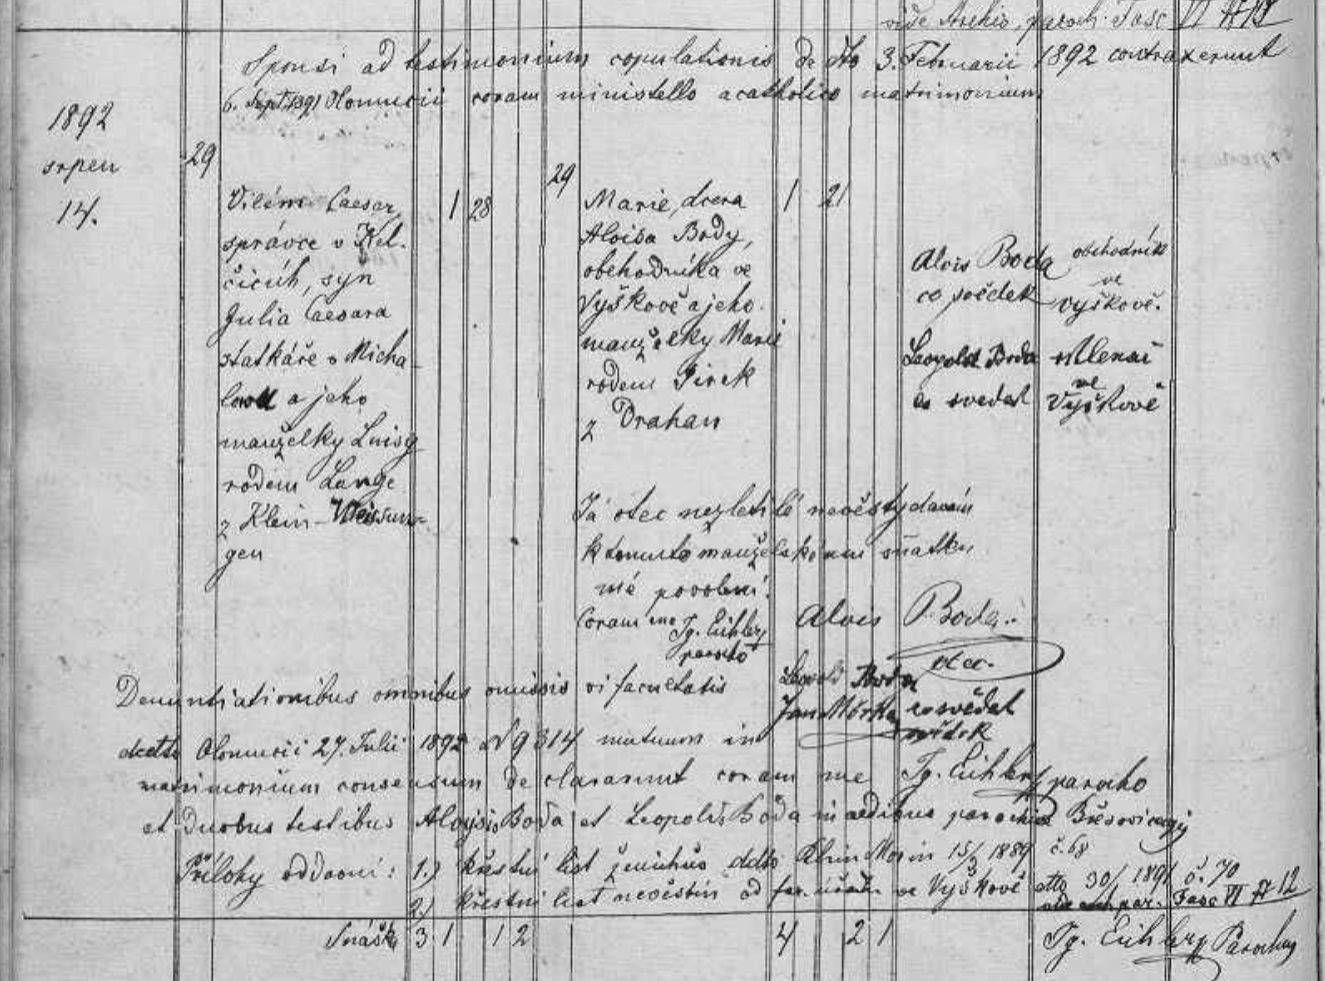 vide Archiv. paroch. Fasc VI
Sponsi ad testimonium copulationis de dto 3. Februarii 1892 contraxerunt
6. Sept. 1891 Olomucii coram ministello acatholico matrimonium
1892
srpen
14.
29
Vilém Caesar,
správce v Kel-
čicích, syn
Julia Caesara
statkáře v Micha-
a jeho
manželky Luisy
rodem Lange
z Klein-
gen
1 28
29
Marie, dcera
Aloisa Body,
obchodníka ve
Vyškově a jeho
manželky Marie
rodem Jirek
z Drahan
1 21
Alois Boda obchodník
co svědek ve Vyškově.
Leopold Boda Mlenář
co svedek ve Vyškově
Já otec nezletilé nevěsty dávám
k tomuto manželskému sňatku
mé povolení.
Coram me Ig. Eichler Alois Boda
parocho otec.
Denuntiationibus omnibus omissis vi facultatis Leopold Boda co svědek
ddtto Olomucii 27. Julii 1892 N 9314 mutuum in Jan svědek
matrimonium consensum declararunt coram me Ig. Eichler parocho
et duobus testibus Aloysio Boda et Leopoldo Boda in aedibus parochiae
Přílohy oddavní: 1.) křestní list ženichův ddto 15/3 1889 č. 68
2.) křestní list nevěstin od far. úřadu ve Vyškově dtto 30/ 1891 č. 70
par. Fasc VI 12
Snáška 3 1 1 2 4 2 1 Ig. Eichler Parochus